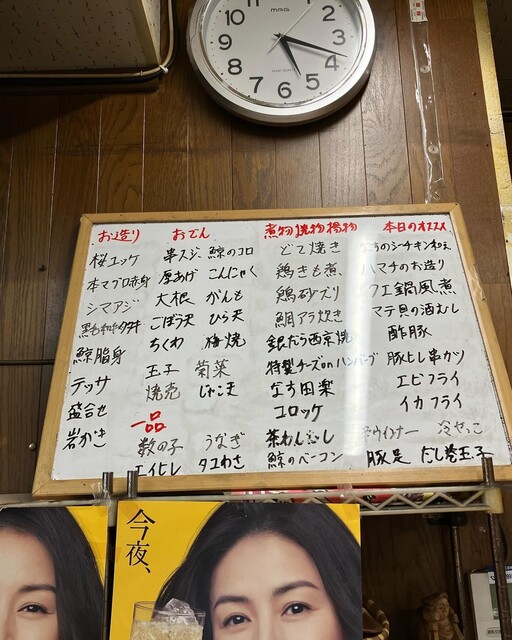 MAG
お造り
桜ユッケ
本マグロ赤身
シマアジ
鯨脂身
テッサ
盛合せ
岩かき
おでん
串スジ 鯨のコロ
厚あげ こんにゃく
大根 がんも
ごぼう天 ひら天
ちくわ 梅焼
玉子 菊菜
焼売 じゃこ天
一品
数の子 うなぎ
エイヒレ タコわさ
煮物 焼物 揚物
どて焼き
鶏きも煮
鶏砂ズリ
鯛アラ炊き
銀だら西京焼
特製チーズonハンバーグ
なす田楽
コロッケ
茶わんむし
鯨のベーコン
本日のオススメ
ハマチのお造り
クエ鍋風煮
マテ貝の酒むし
酢豚
豚ヒレ串カツ
エビフライ
イカフライ
ウインナー 冷やっこ
豚足 だし巻玉子
今夜、